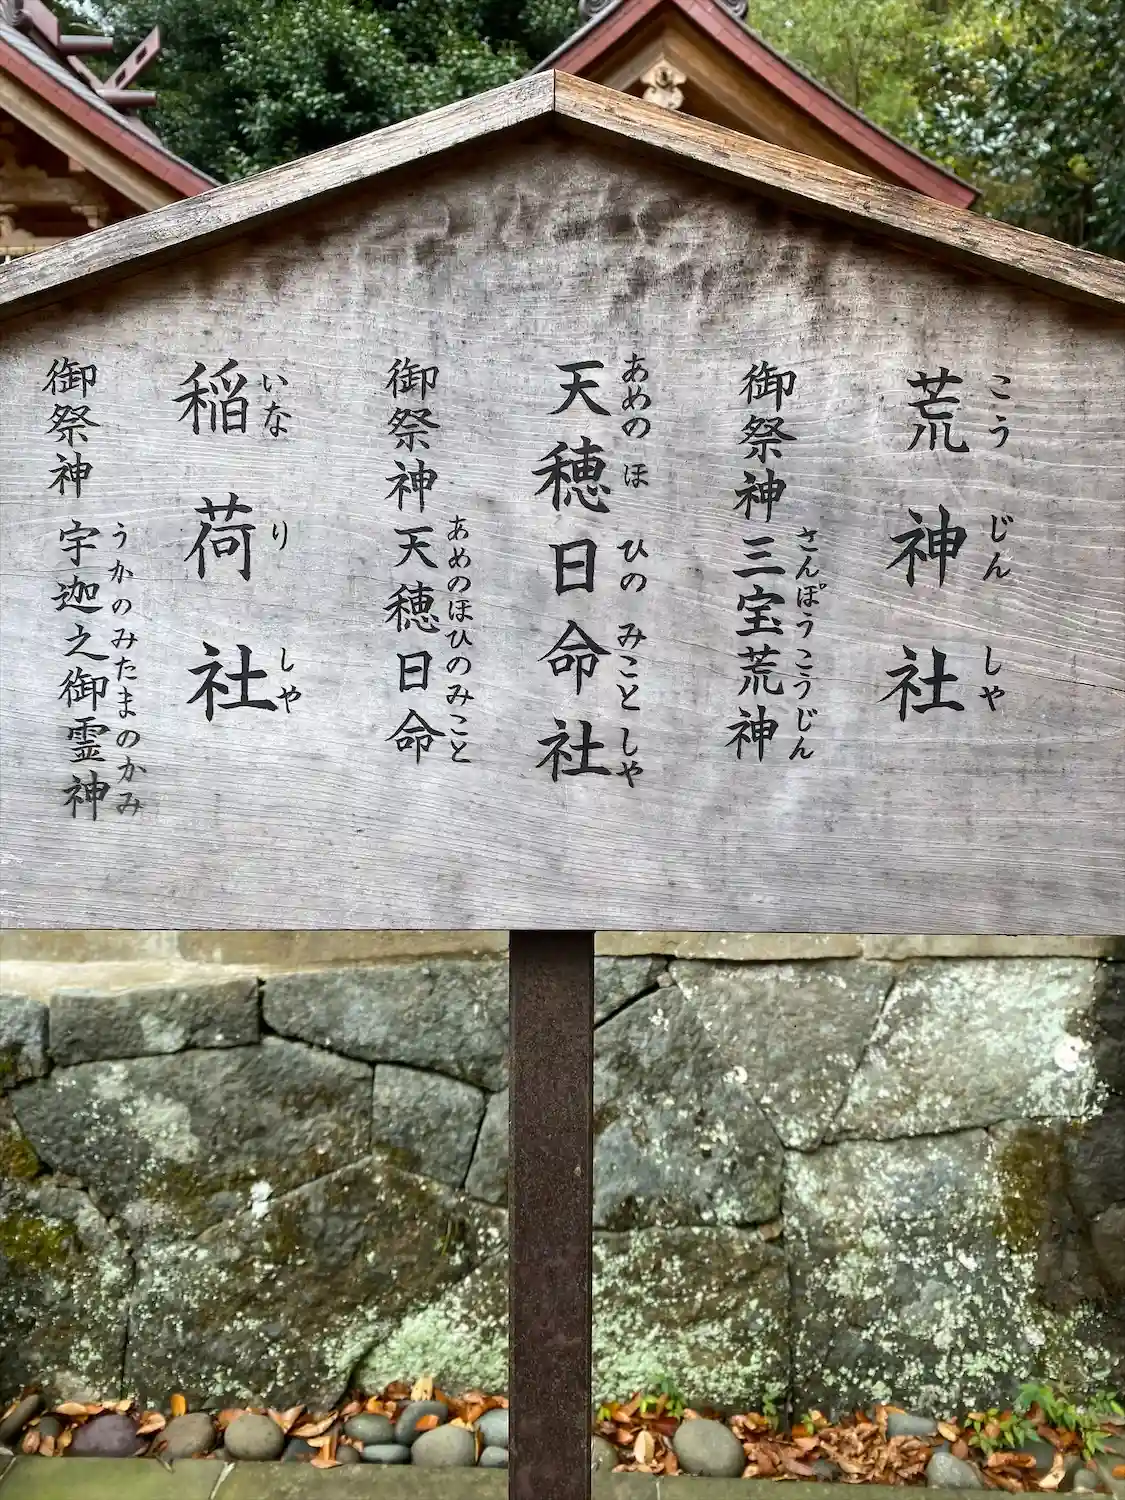 荒神社
こうじんしゃ
御祭神 三宝荒神
さんぽうこうじん
天穂日命社
あめのほひのみことしゃ
御祭神 天穂日命
あめのほひのみこと
稲荷社
いなりしゃ
御祭神 宇迦之御霊神
うかのみたまのかみ